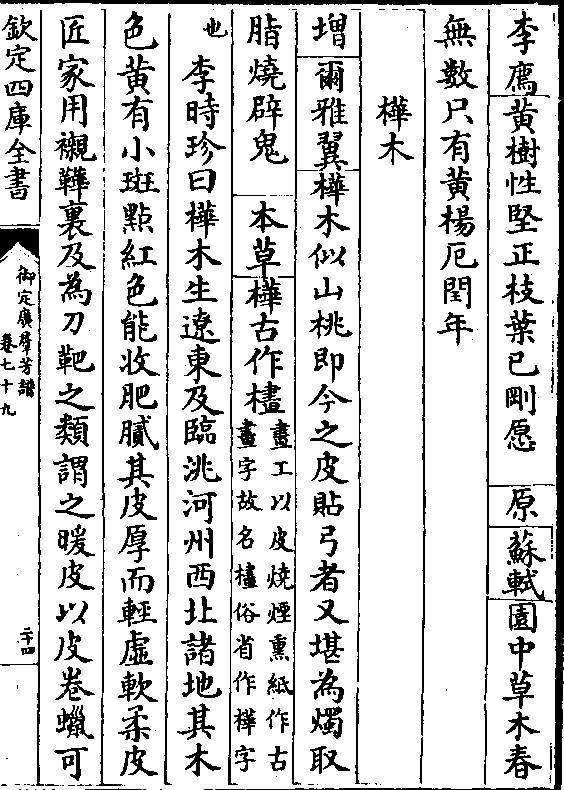 李廌黃樹性堅正枝葉已剛愿 原蘇軾園中草木春
無數只有黃楊厄閏年
樺木
增爾雅翼樺木似山桃即今之皮貼弓者又堪為燭取
脂燒辟鬼 本草樺古作𣛛
畫工以皮燒煙熏紙作古
畫字故名𣛛俗省作樺字
也 李時珍曰樺木生遼東及臨洮河州西北諸地其木
色黃有小斑點紅色能收肥膩其皮厚而輕虛軟柔皮
匠家用襯鞾裏及為刀靶之類謂之暖皮以皮卷蠟可
欽定四庫全書
御定廣群芳譜
卷七十九
二十四